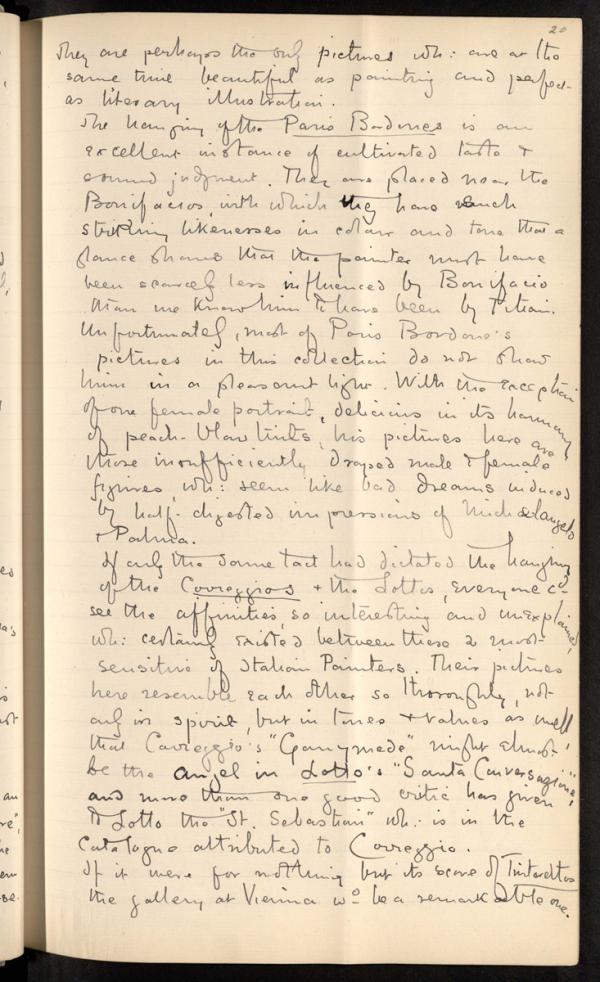 20
They are perhaps the only pictures wh: are at the
same time beautiful as painting and perfect
as literary illustration.
The hanging of the Paris Bordones is an
excellent instance of cultivated taste &
sound judgment. They are placed near the
Bonifacios, with which they have such
striking likenesses in colour and tone that a
glance shows that the painter must have
been scarcely less influenced by Bonifacio
than we know him to have been by Titian.
Unfortunately, most of Paris Bordone's
pictures in this collection do not show
him in a pleasant light. With the exception
of one female portrait, delicious in its harmony
of peach-blow tints, his pictures here are
those insufficiently draped male & female
figures, wh: seem like bad dreams induced
by half-digested impressions of Michelangelo
& Palma.
If only the same tact had dictated the hanging
of the Correggios & the Lottos, everyone cd
see the affinities, so interesting and unexplained,
wh: certainly existed between these 2 most
sensitive of Italian Painters. Their pictures
here resemble each other so thoroughly, not
only in spirit, but in tones & values as well,
that Correggio's "Ganymede" might almost
be the angel in Lotto's "Santa Conversazione",
and more than one good critic has given
to Lotto the "St. Sebastian" wh: is in the
Catalogue attributed to Correggio.
If it were for nothing but its score of Tintorettos
the gallery at Vienna wd be a remarkable one.